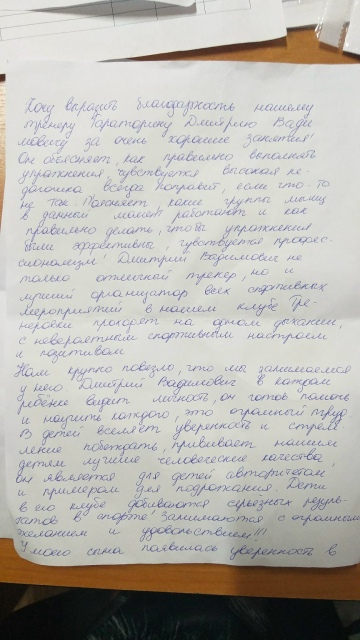 Хочу выразить благодарность нашему
тренеру Тараторкину Дмитрию Вади
мовичу за очень хорошие занятия!
Он объясняет, как правильно выполнять
упражнения, чувствуется высокая пе-
дагогика всегда поправит, если что-то
не так. Поясняет, какие группы мышц
в данный момент работают и как
правильно делать, чтобы упражнения
были эффективны, чувствуется профес-
сионализм! Дмитрий Вадимович не
только отличный тренер, но и
лучший организатор всех спортивных
мероприятий в нашем клубе. Тре-
нировки проходят на одном дыхании,
с невероятным спортивным настроем
и позитивом.
Нам крупно повезло, что мы занимаемся
у него. Дмитрий Вадимович в каждом
ребёнке видит личность, он готов помочь
и научить каждого, это огромный труд.
В детей вселяет уверенность и стрем-
ление побеждать, прививает нашим
детям лучшие человеческие качества,
он является для детей авторитетом
и примером для подражания. Дети
в его клубе добиваются серьёзных резуль-
татов в спорте. Занимаются с огромным
желанием и удовольствием!!!
У моего сына появилась уверенность в